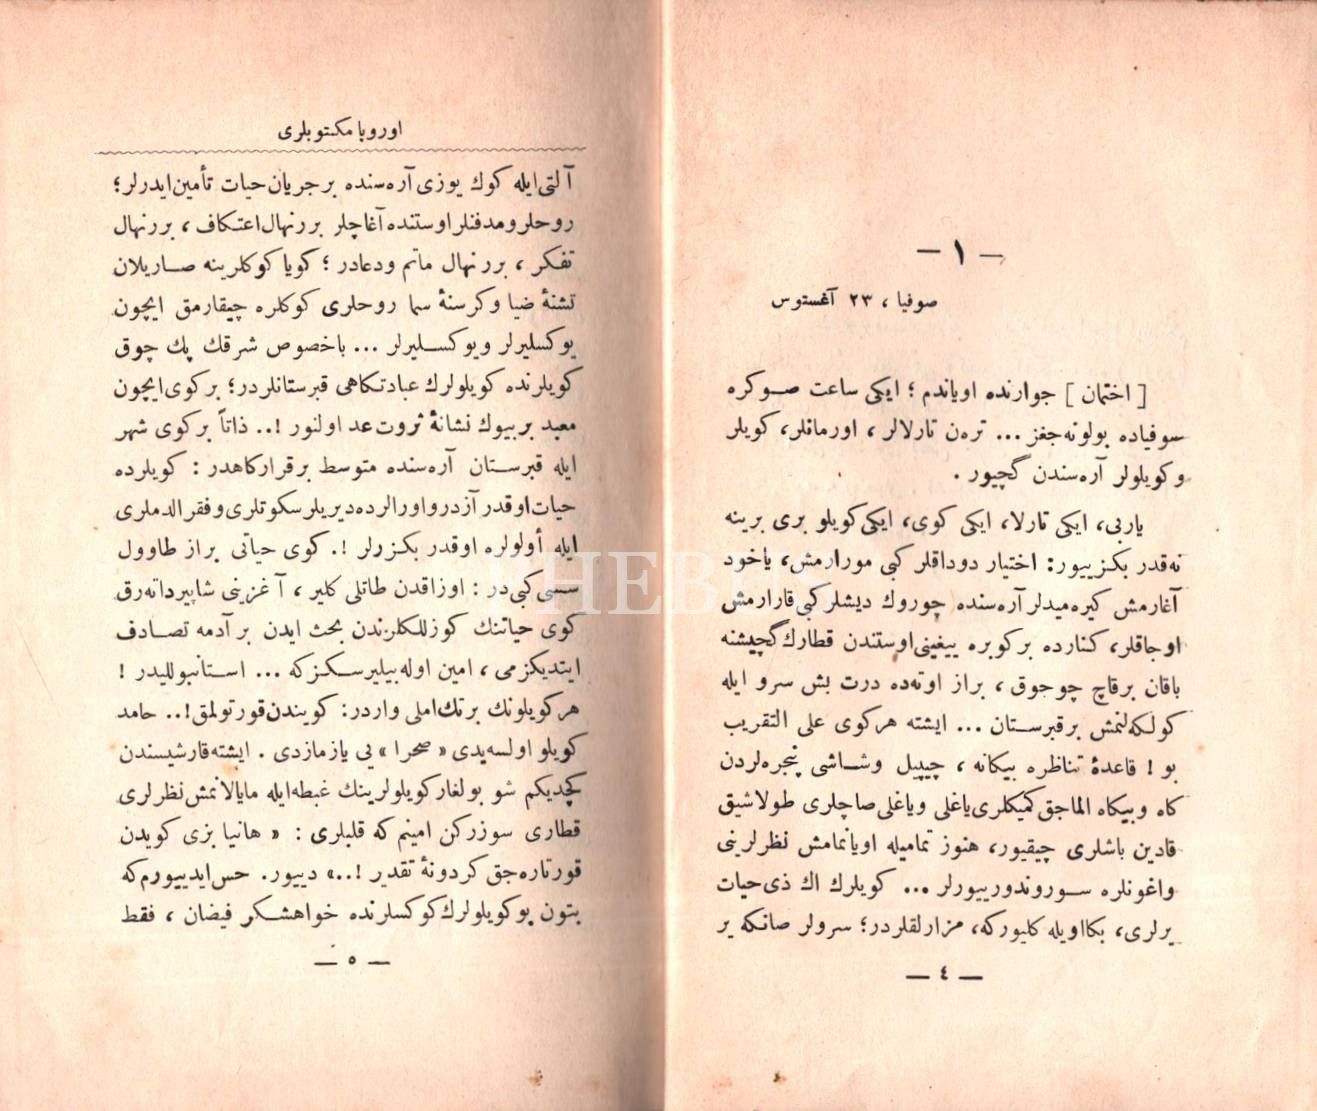 — ١ —
صوفيا ، ٢٣ آغستوس
[ اختمان ] جوارنده اوياندم ؛ ايكى ساعت صوكره
سوفياده بولونه جغز ... ترەن تارلالر ، اورمانلر، كويلر
وكويلولر آره سندن گچيور .
ياربى، ايكى تارلا، ايكى كوى، ايكى كويلو برى برينه
نه قدر بكزييور: اختيار دوداقلر كبى مورارمش، ياخود
آغارمش كيره ميدلر آره سنده چوروك ديشلر كبى قارارمش
اوجاقلر، كنارده بر كوبره ييغينى اوستندن قطارك گچيشنه
باقان برقاچ چوجوق ، براز اوته ده درت بش سرو ايله
كولكه لنمش بر قبرستان ... ايشته هر كوى على التقريب
بو ! قاعدۀ تناظره بيكانه ، چيپيل وشاشى پنجره لردن
كاه وبيكاه الماجق كميكلرى ياغلى وياغلى صاچلرى طولاشيق
قادين باشلرى چيقيور، هنوز تماميله اويانمامش نظرلرينى
واغونلره سوروندورييورلر ... كويلرك اك ذى حيات
يرلرى، بكا اويله كليوركه، مزارلقلردر؛ سرولر صانكه ير
— ٤ —
اوروپا مكتوبلرى
آلتى ايله كوك يوزى آره سنده بر جريان حيات تأمين ايدرلر؛
روحلر ومدفنلر اوستنده آغاچلر بر رنهال اعتكاف ، بر رنهال
تفكر ، بر رنهال ماتم ودعادر ؛ كويا كوكلرينه صاريلان
تشنۀ ضيا وكرسنۀ سما روحلرى كوكلره چيقارمق ايچون
يوكسليرلر ويوكسليرلر ... باخصوص شرقك پك چوق
كويلرنده كويلولرك عبادتكاهى قبرستانلردر؛ بر كوى ايچون
معبد بر بيوك نشانۀ ثروت عد اولنور !.. ذاتاً بر كوى شهر
ايله قبرستان آره سنده متوسط بر قراركاهدر : كويلرده
حيات اوقدر آزدر و اورالرده ديريلر سكوتلرى وفقر الدملرى
ايله أولولره اوقدر بكزرلر !. كوى حياتى براز طاوول
سسى كبى در : اوزاقدن طاتلى كلير ، آغزينى شاپيرداته رق
كوى حياتنك كوزللكلرندن بحث ايدن بر آدمه تصادف
ايتديكزمى ، امين اوله بيليرسكزكه ... استانبولليدر !
هر كويلونك بر تك املى واردر: كويندن قورتولمق!.. حامد
كويلو اولسه يدى « صحرا » يى يازمازدى . ايشته قارشيسندن
كچديكم شو بولغار كويلولرينك غبطه ايله مايالانمش نظرلرى
قطارى سوزركن امينم كه قلبلرى : « هانيا بزى كويدن
قورتاره جق كردونۀ تقدير !..» دييور. حس ايدييورم كه
بتون بو كويلولرك كوكسلرنده خواهشكر فيضان ، فقط
— ٥ —
PHEBUS